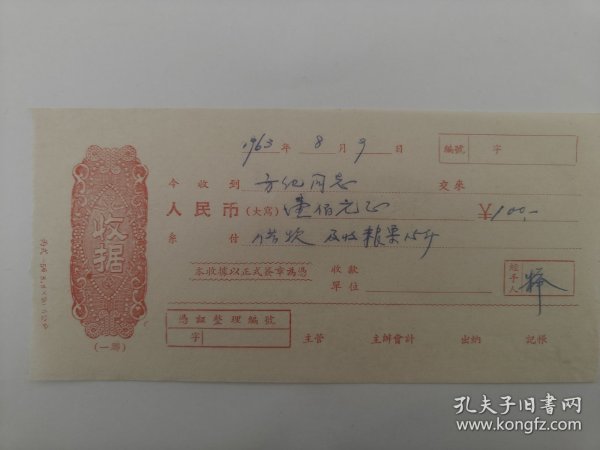 1963年 8月 9日
編號 字
今收到 方纪同志 交來
人民币(大寫) 壹佰元正 ¥100.-
系付 及收粮票15斤
本收據以正式簽章為憑
收款
單位
經手人
收据
憑証整理編號
字
(一聯)
主管 主辦會計 出納 記帳
孔夫子旧书网
www.kongfz.com